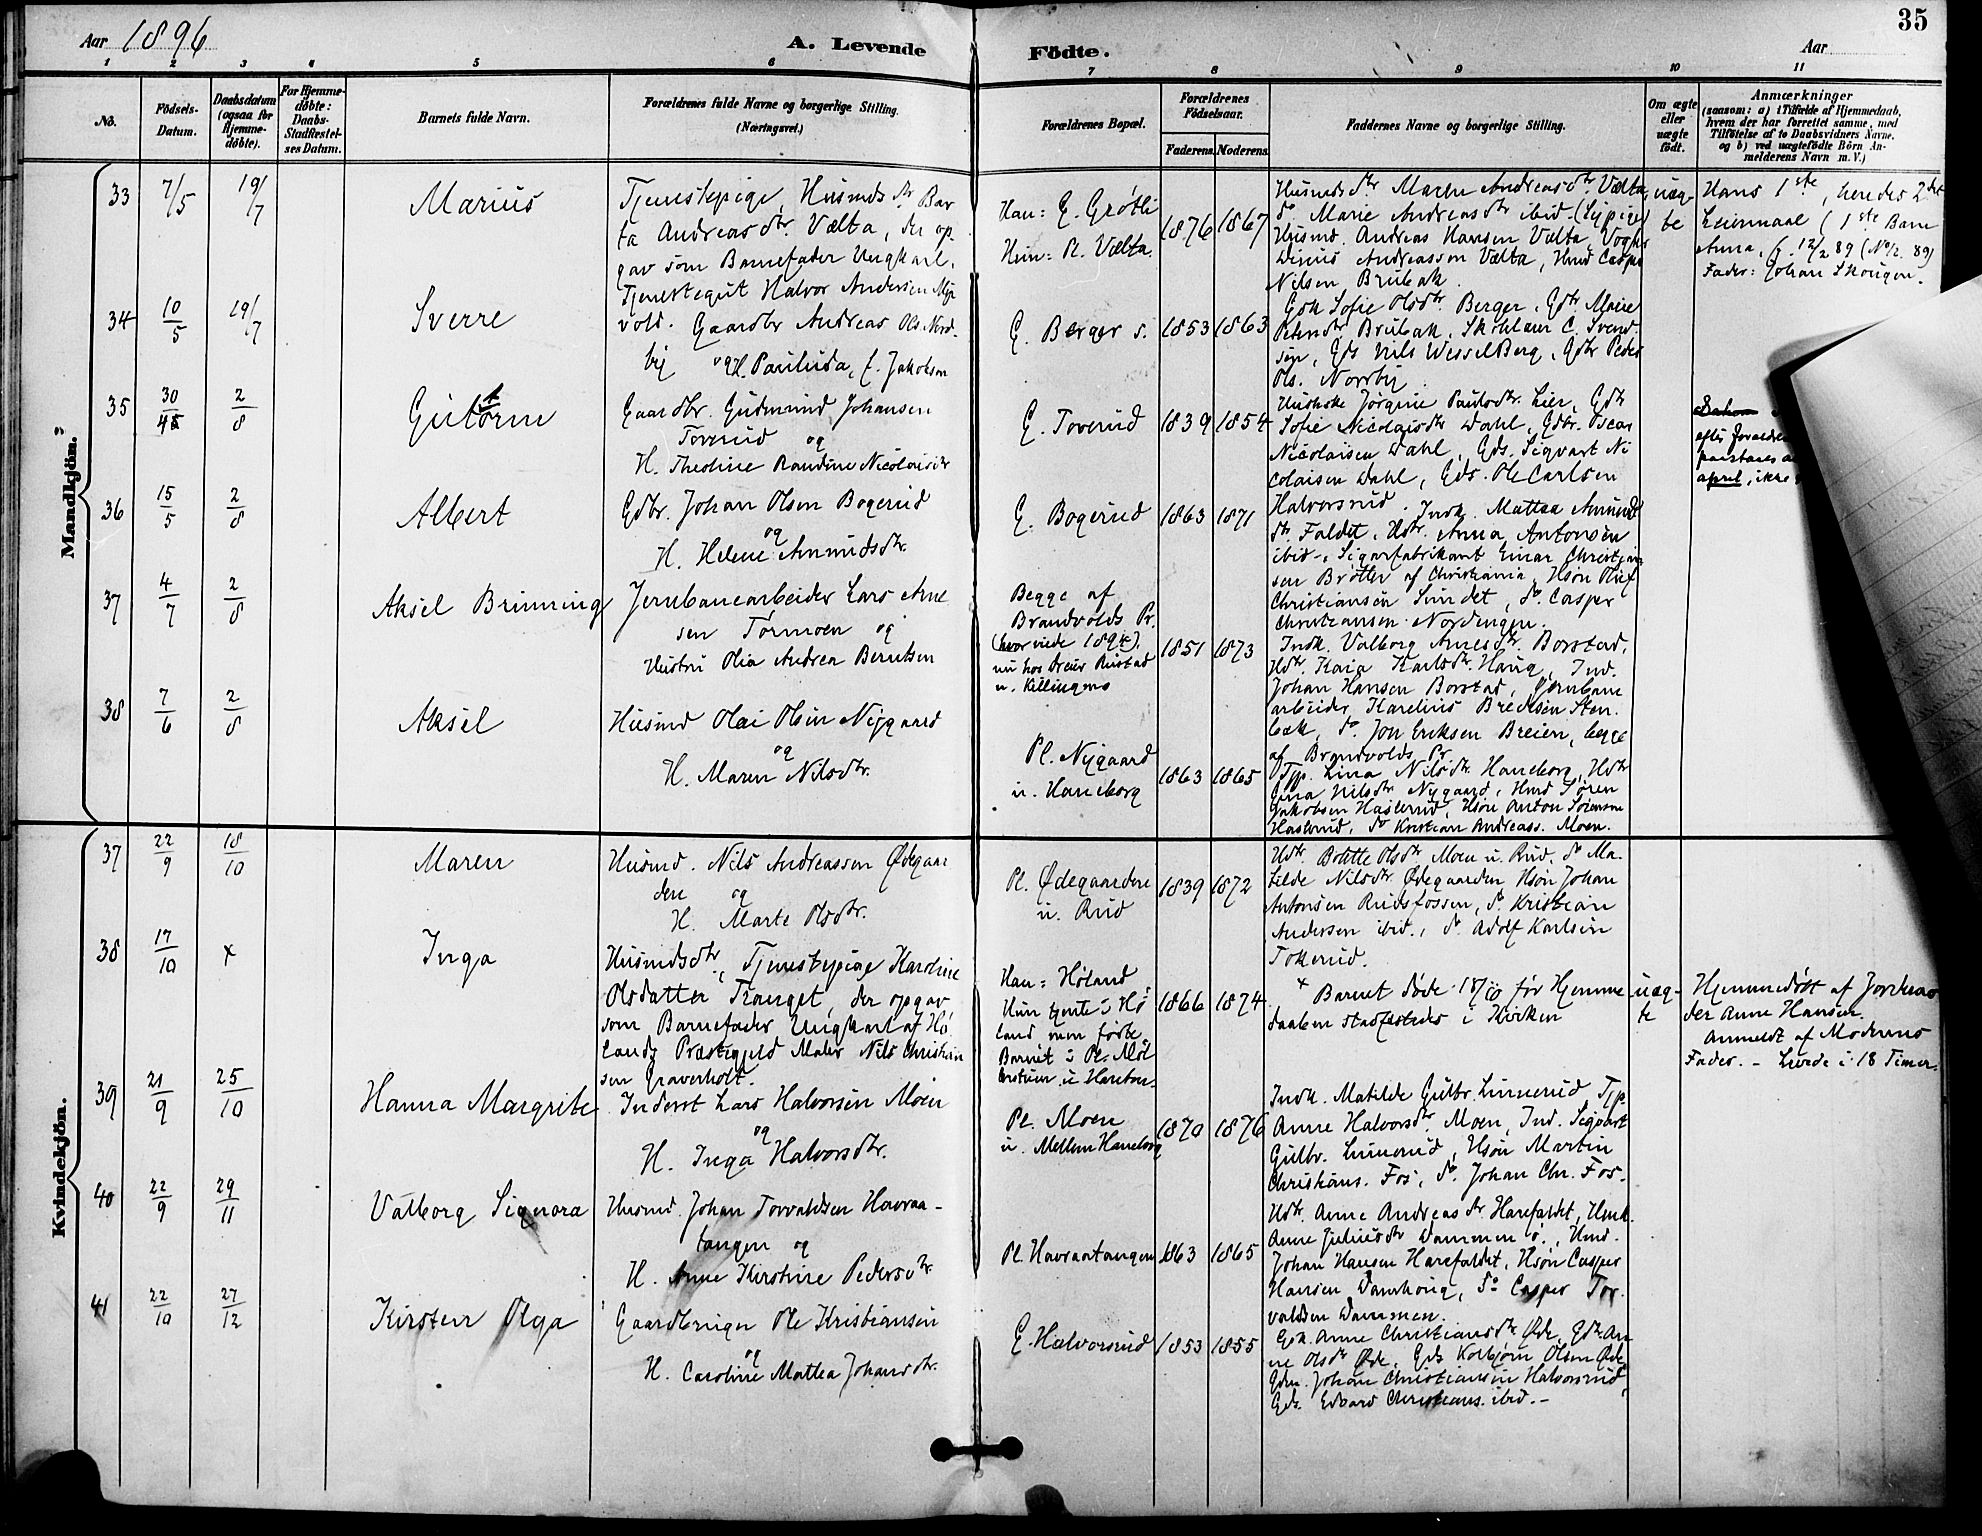 35
Aar 1896
A. Levende
Födte.
Aar
1 2 3 4 5 6 7 8 9 10 11
No.
Födsels-
Datum.
Daabsdatum
(ogsaa for
Hjemme-
döbte).
For Hjemme-
döbte:
Daabs-
Stadfæstel-
ses Datum.
Barnets fulde Navn.
Forældrenes fulde Navne og borgerlige Stilling.
(Næringsvei.)
Forældrenes Bopæl.
Forældrenes
Födselsaar.
Faderens. Moderens.
Faddernes Navne og borgerlige Stilling.
Om ægte
eller
uægte
födt.
Anmærkninger
(saasom: a) i Tilfælde af Hjemmedaab,
hvem der har forrettet samme, med
Tilföielse af to Daabsvidners Navne,
og b) ved uægtefödte Börn An-
melderens Navn m. V.)
Mandkjön.
33 7/5 19/7 Marius
Tjenestepige, Husmds dtr. Bar
ta Andreasdtr. Vælta, der op-
gav som Barnefader Ungkarl,
Tjenestegut Halvor Andersen Myr
vold.
Han: E. Grøtli
Hun: Pl. Vælta.
1876 1867
Husmds dtr Maren Andreasdtr. Vælta,
do. Marie Andreasdtr ibid.
Husmd. Andreas Hansen Vælta,
Andreassen Vælta, Hmd Casper
Nilsen Brubak.
uæg-
te
Hans 1ste, hendes 2det
Leiermaal (1ste Barn
Anna, f. 12/2 89 (No 2. 89)
Fader: Johan Skougen.
34 10/5 19/7 Sverre
Gaardbr Andreas Ols. Nord-
by og H. Paulida, f. Jakobsen
E. Berger s. 1853 1863
Gdk Sofie Olsdtr. Berger, Gdtr. Marie
Petersdtr Brubak, Skolelærer C. Svend-
sen, Gds Nils Wessel Berg, Gdbr Peder
Ols. Nordby
35 30/45 2/8 Gutorm
Gaardbr. Gudmund Johansen
Toverud og
H. Theoline Randine Nicolaisdtr
E. Toverud 1839 1854
Jørgine Paulsdtr. Lier, Gdtr
Sofie Nicolaisdtr Dahl, Gdbr. Oscar
Nicolaisen Dahl, Gds. Sigvart Ni
colaisen Dahl, Gds. Ole Carlsen
Halvorsrud.
efter Forældre
paastaaes a
april, ikke
36 15/5 2/8 Albert
Gdbr. Johan Olsen Bogerud
og
H. Helene Amundsdtr.
E. Bogerud 1863 1871
Indk. Mathea Amund
dtr. Faldet, Udtr. Anna Antonsen
ibid., Sigarfabrikant Einar Christian
sen Brøtter af Christiania, Hsøn Oluf
Christiansen Sundet, do. Casper
Christiansen Nordengen.
37 4/7 2/8 Aksel Brinning
Jernbanearbeider Lars Arne
sen Tørmoen og
Hustru Olia Andrea Berntsen
Begge af
Brandvolds Pr.
(hvor viede 1894).
nu hos Rustad
u. Killingmo
1851 1873
Indk. Valborg Arnesdtr Borstad,
Udtr. Kaia Karlsdtr. Haug, Ind.
Johan Hansen Borstad, Jernbane
arbeider Karelius Bredesen Sten
bæk, do. Jon Eriksen Breien, begge
af Brandvolds Pr.
38 7/6 2/8 Aksel
Husmd Olai Olsen Nygaard
og
H. Maren Nilsdtr.
Pl. Nygaard
u. Haneborg
1863 1865
Tjp. Lina Nilsdtr. Haneborg, Udtr
Nilsdtr Nygaard, Hmd Søren
Jakobsen Haslerud, Hsøn Anton Sørensen
Haslerud, do Kristian Andreass. Moen.
Kvindekjön.
37 22/9 18/10 Maren
Husmd. Nils Andreassen Ødegaar
den og
H. Marte Olsdtr.
Pl. Ødegaarden
u. Rud
1839 1872
Udtr. Olsdtr. Moen u. Rud, do Ma-
tilde Nilsdtr Ødegaarden Hsøn Johan
Antonsen Rudsfossen, do. Kristian
Andersen ibid., do. Adolf Karlsen
Tokerud.
38 17/10 x Inga
Husmdsdtr, Tjenestepige Karoline
Olsdatter Tranget, der opgav
som Barnefader Ungkarl af Hø-
lands Præstegjeld Maler Nils Christian
sen Graverholt.
Han: Høland
Hun tjente i Hø
land, men fødte
Barnet i Pl.
1866 1874
x Barnet døde 18/10 før Hjemme
daaben stadfæstedes i Kirken
uæg-
te
Hjemmedøbt af Jordmo
der Anne Hansen.
Anmeldt af Moderens
Fader. – Levede i 18 Timer.
39 21/9 25/10 Hanna Margrite
Inderst Lars Halvorsen Moen
og
H. Inga Halvorsdtr.
Pl. Moen
u. Mellem Haneborg
1870 1876
Indk. Matilde Gulbr. Linnerud Tjp.
Anne Halvorsd. Moen, Ind. Sigvart
Gulbr. Linnerud, Hsøn Martin
Christians. Fos, do. Johan Chr. Fos.
40 22/9 29/11 Valborg Signora
Husmd. Johan Torvaldsen Havraa-
tangen og
H. Anne Kirstine Pedersdtr.
Pl. Havraatangen 1863 1865
Udtr. Anne Andreasdtr Harefaldet, Hmk.
Anne Juliusdtr Dammen ø., Hmd.
Johan Hansen Harefaldet, Hsøn Casper
Hansen Damhoug, do Casper Tor
valdsen Dammen.
41 22/10 27/12 Kirsten Olga
Gaardbruger Ole Kristiansen
og
H. Caroline Mathea Johansdtr.
E. Halvorsrud 1853 1855
Gdk. Anne Christiansdtr Øde, Gdtr. An-
ne Olsdtr Øde, Gds Kolbjørn Olsen Øde,
Gdm. Johan Christiansen Halvorsrud,
Gds. Edvard Christians. ibid.–